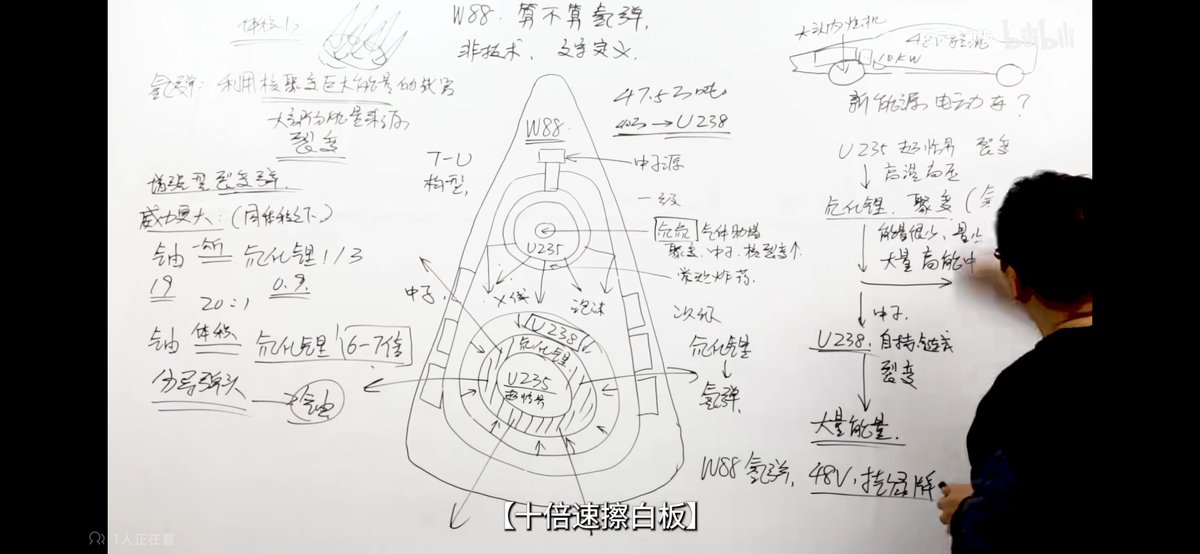 体积小
W88. 算不算氢弹,
非技术, 文字定义.
大部分内燃机
48V轻混
10KW
bilibili
氢弹: 利用核聚变巨大能量的武器
大部分能量来源
裂变
新能源电动车?
47.5万吨
40万→U238
W88.
T-U
构型,
中子源
一级
增强型裂变弹.
威力更大: (同体积之下.)
铀 一斤 氘化锂 1/3
19 0.9.
20:1
铀 体积 氘化锂 6-7倍
分导弹头 → 铀
氘氚 气体助爆
聚变. 中子.
U235
常规炸药.
中子.
X线
泡沫
次级
U238
氘化锂
U235
超临界
氘化锂
氢弹.
U235 超临界 裂变
高温高压
氘化锂. 聚变
能量很少,
大量高能中
中子.
U238. 自持链式
裂变
大量能量.
W88 氢弹, 48V, 挂绿牌
【十倍速擦白板】
1人正在看